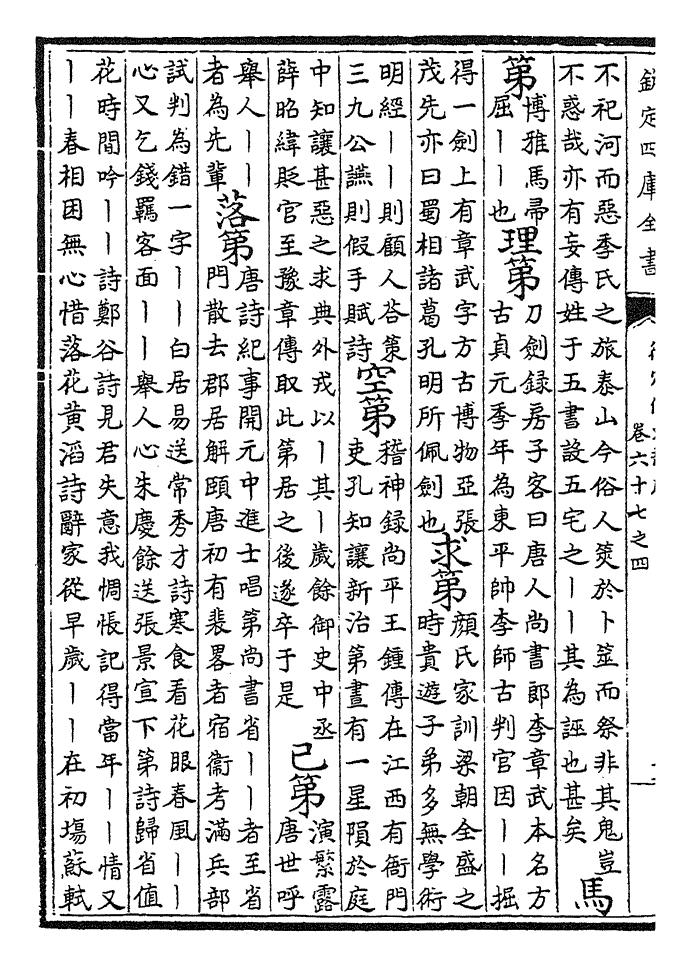 欽定四庫全書
卷六十七之四
不祀河而惡季氏之旅泰山今俗人筴於卜筮而祭非其鬼豈
不惑哉亦有妄傳姓于五書設五宅之丨丨其為誣也甚矣
馬
第
博雅馬帚
屈丨丨也
理第
刀劍録房子客曰唐人尚書郎李章武本名方
古貞元季年為東平帥李師古判官因丨丨掘
得一劍上有章武字方古博物亞張
茂先亦曰蜀相諸葛孔明所佩劍也
求第
顔氏家訓梁朝全盛之
時貴遊子弟多無學術
明經丨丨則顧人荅策
三九公讌則假手賦詩
空第
稽神録尚平王鍾傳在江西有衙門
吏孔知讓新治第晝有一星隕於庭
中知讓甚惡之求典外戎以丨其丨歲餘御史中丞
薛昭緯貶官至豫章傳取此第居之後遂卒于是
已第
演繁露
唐世呼
舉人丨丨
者為先輩
落第
唐詩紀事開元中進士唱第尚書省丨丨者至省
門散去郡居解頤唐初有裴畧者宿衞考滿兵部
試判為錯一字丨丨白居易送常秀才詩寒食看花眼春風丨丨
心又乞錢羇客面丨丨舉人心朱慶餘送張景宣下第詩歸省值
花時間吟丨丨詩鄭谷詩見君失意我惆悵記得當年丨丨情又
丨丨春相困無心惜落花黄滔詩辭家從早歲丨丨在初塲蘇軾